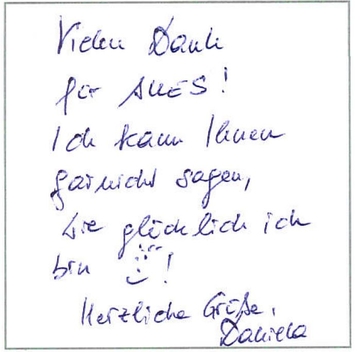 Vielen Dank
für ALLES!
Ich kann Ihnen
garnicht sagen,
wie glücklich ich
bin !
Herzliche Grüße,
Daniela